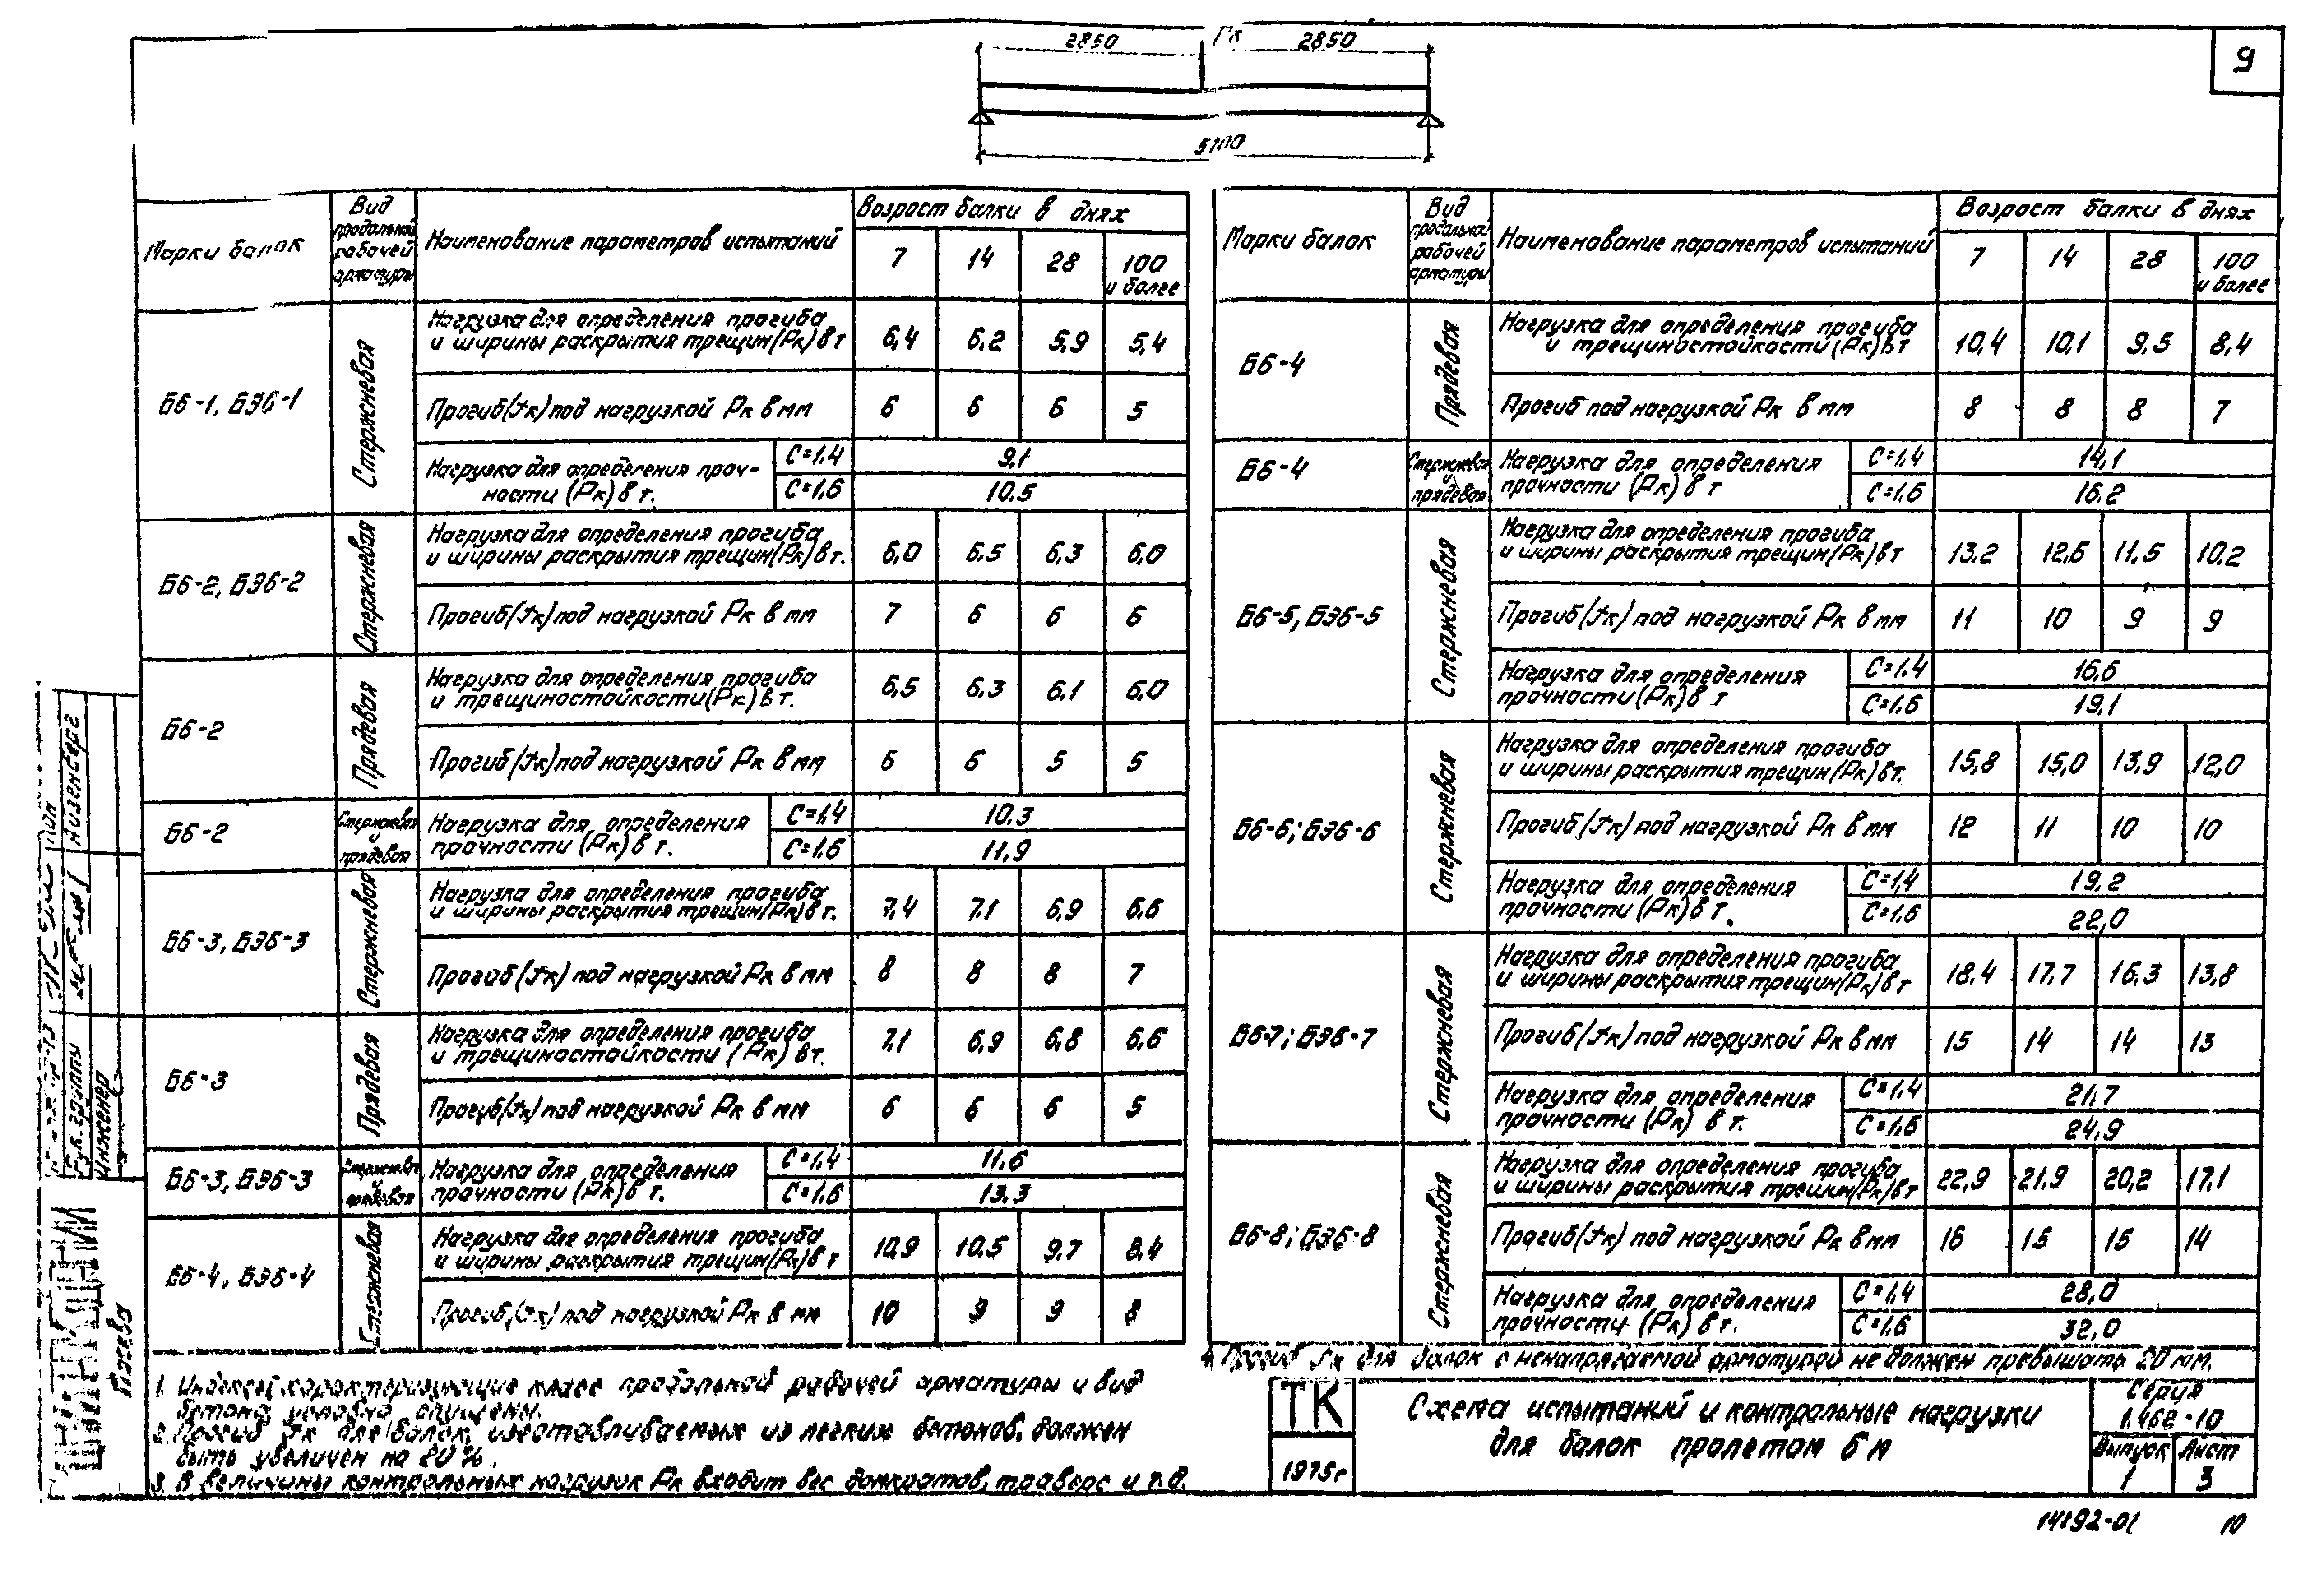 9
2850 Рк 2850
5700
Марки балок
Вид продольной рабочей арматуры
Наименование параметров испытаний
Возраст балки в днях
7 14 28 100 и более
Б6-1, БЭ6-1
Стержневая
Нагрузка для определения прогиба
и ширины раскрытия трещин (Рк) в т 6,4 6.2 5,9 5,4
Прогиб (fк) под нагрузкой Рк в мм 6 6 6 5
Нагрузка для определения проч-
ности (Рк) в т.
С=1.4 9,1
С=1,6 10,5
Б6-2, БЭ6-2
Стержневая
Нагрузка для определения прогиба
и ширины раскрытия трещин (Рк) в т. 6,0 6.5 6,3 6,0
Прогиб (fк) под нагрузкой Рк в мм 7 6 6 6
Б6-2
Прядевая
Нагрузка для определения прогиба
и трещиностойкости (Рк) в т. 6,5 6.3 6,1 6,0
Прогиб (fк) под нагрузкой Рк в мм 6 6 5 5
Б6-2
Стержневая и прядевая
Нагрузка для определения
прочности (Рк) в т.
С=1,4 10.3
С=1.6 11,9
Б6-3, БЭ6-3
Стержневая
Нагрузка для определения прогиба
и ширины раскрытия трещин (Рк) в т. 7,4 7.1 6,9 6,6
Прогиб (fк) под нагрузкой Рк в мм 8 8 8 7
Б6-3
Прядевая
Нагрузка для определения прогиба
и трещиностойкости (Рк) в т. 7,1 6,9 6,8 6,6
Прогиб (fк) под нагрузкой Рк в мм 6 6 6 5
Б6-3, БЭ6-3
Стержневая и прядевая
Нагрузка для определения
прочности (Рк) в т.
С=1,4 11.6
С=1,6 13.3
Б6-4, БЭ6-4
Стержневая
Нагрузка для определения прогиба
и ширины раскрытия трещин (Рк) в т 10,9 10.5 9.7 8.4
Прогиб (fк) под нагрузкой Рк в мм 10 9 9 8
1. Индексы, характеризующие класс продольной рабочей арматуры и вид
бетона, условно опущены.
2. Прогиб fк для балок, изготавливаемых из легких бетонов, должен
быть увеличен на 20%.
3. В величины контрольных нагрузок Рк входит вес домкратов, траверс и т.д.
Марки балок
Вид продольной рабочей арматуры
Наименование параметров испытаний
Возраст балки в днях
7 14 28 100 и более
Б6-4
Прядевая
Нагрузка для определения прогиба
и трещиностойкости (Рк) в т 10,4 10,1 9,5 8,4
Прогиб под нагрузкой Рк в мм 8 8 8 7
Б6-4
Стержневая и прядевая
Нагрузка для определения
прочности (Рк) в т
С=1,4 14,1
С=1,6 16,2
Б6-5, БЭ6-5
Стержневая
Нагрузка для определения прогиба
и ширины раскрытия трещин (Рк) в т 13,2 12,6 11,5 10,2
Прогиб (fк) под нагрузкой Рк в мм 11 10 9 9
Нагрузка для определения
прочности (Рк) в т
С=1.4 16,6
С=1.6 19,1
Б6-6; БЭ6-6
Стержневая
Нагрузка для определения прогиба
и ширины раскрытия трещин (Рк) в т. 15,8 15,0 13,9 12,0
Прогиб (fк) под нагрузкой Рк в мм 12 11 10 10
Нагрузка для определения
прочности (Рк) в т.
С=1,4 19,2
С=1.6 22,0
Б6-7; БЭ6-7
Стержневая
Нагрузка для определения прогиба
и ширины раскрытия трещин (Рк) в т 18.4 17.7 16.3 13,8
Прогиб (fк) под нагрузкой Рк в мм 15 14 14 13
Нагрузка для определения
прочности (Рк) в т.
С=1.4 21,7
С=1.6 24,9
Б6-8; БЭ6-8
Стержневая
Нагрузка для определения прогиба
и ширины раскрытия трещин (Рк) в т 22,9 21.9 20,2 17,1
Прогиб (fк) под нагрузкой Рк в мм 16 15 15 14
Нагрузка для определения
прочности (Рк) в т.
С=1,4 28,0
С=1.6 32,0
4. Прогиб fк для балок с ненапрягаемой арматурой не должен превышать 20 мм.
ТК
1975г
Схема испытаний и контрольные нагрузки
для балок пролетом 6 м
Серия
1.462-10
Выпуск Лист
1 3
14192-01 10
Рук. группы
Инженер